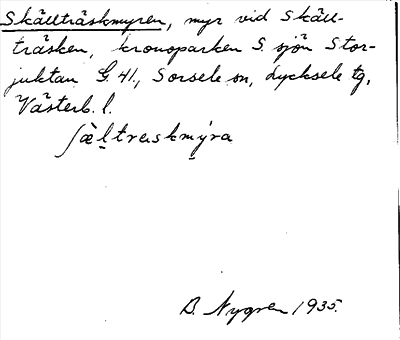 Skällträskmyren, myr vid Skäll-
träsken, kronoparken S. sjön Stor-
juktan G. 41, Sorsele sn, Lycksele tg,
Västerb. l.
ʃæ̀l̥traskmýra
B. Nygren 1935.